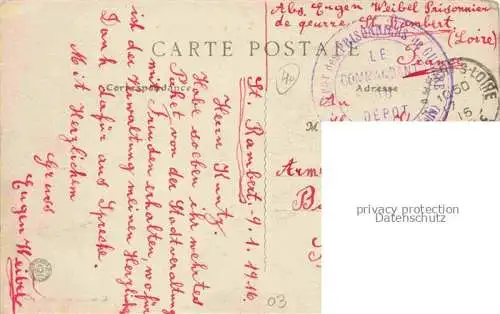 Abs. Eugen Weibel Prisonnier
de geurre St. Rambert
(Loire)
France
CARTE POSTALE
Correspondance
Adresse
LE
COMMANDANT
DU
DEPOT
PRISONNIERS DE GUERRE
LOIRE
St. Rambert 9.1.1916
Herrn Kuntz.
Habe soeben ihr wehrtes
Paket von der Stadtverwaltung
mit Freuden erhalten, wofür
ist der Verwaltung meinen Herzlich
Dank dafür aus Spreche.
Mit Herzlichem
Gruss
Eugen Weibel
An
M
Arme
privacy protection
Datenschutz
03
40